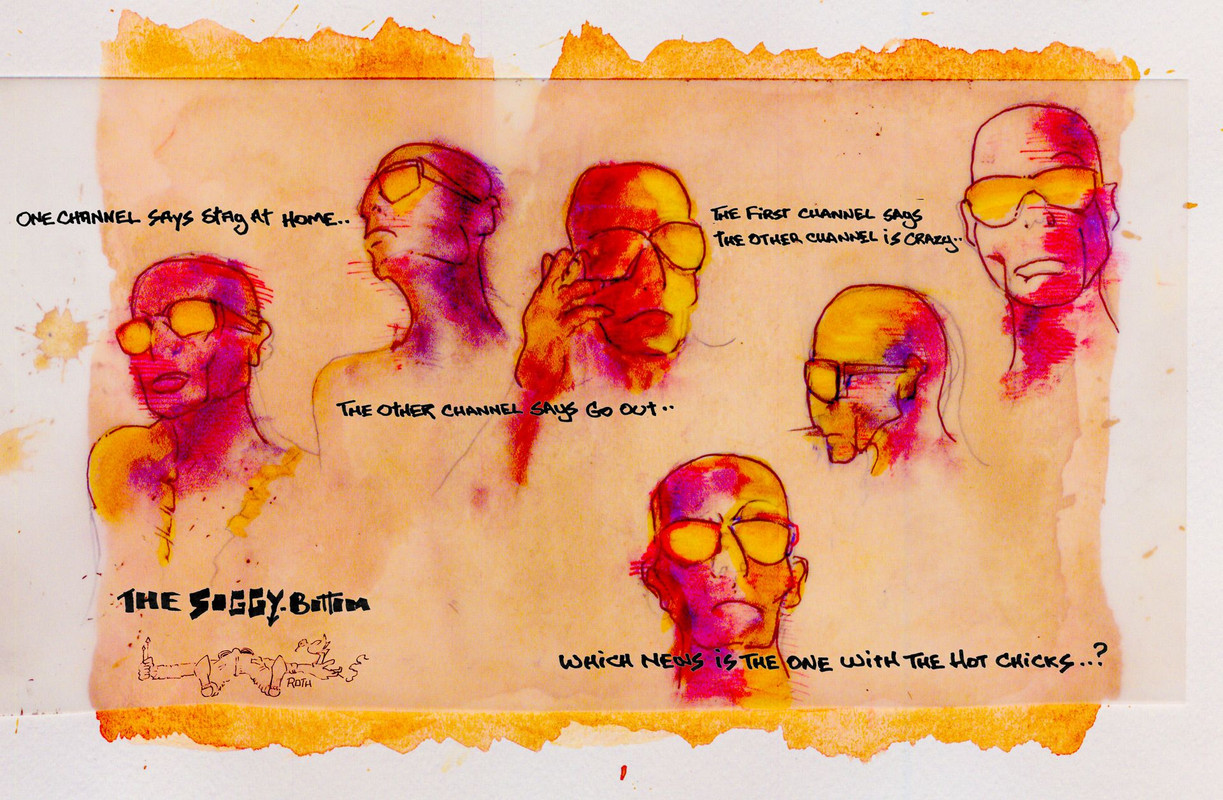 ONE CHANNEL SAYS STAY AT HOME..
THE OTHER CHANNEL SAYS GO OUT..
THE FIRST CHANNEL SAYS
THE OTHER CHANNEL IS CRAZY..
WHICH NEWS IS THE ONE WITH THE HOT CHICKS...?
THE SOGGY-BOTTOM
ROTH